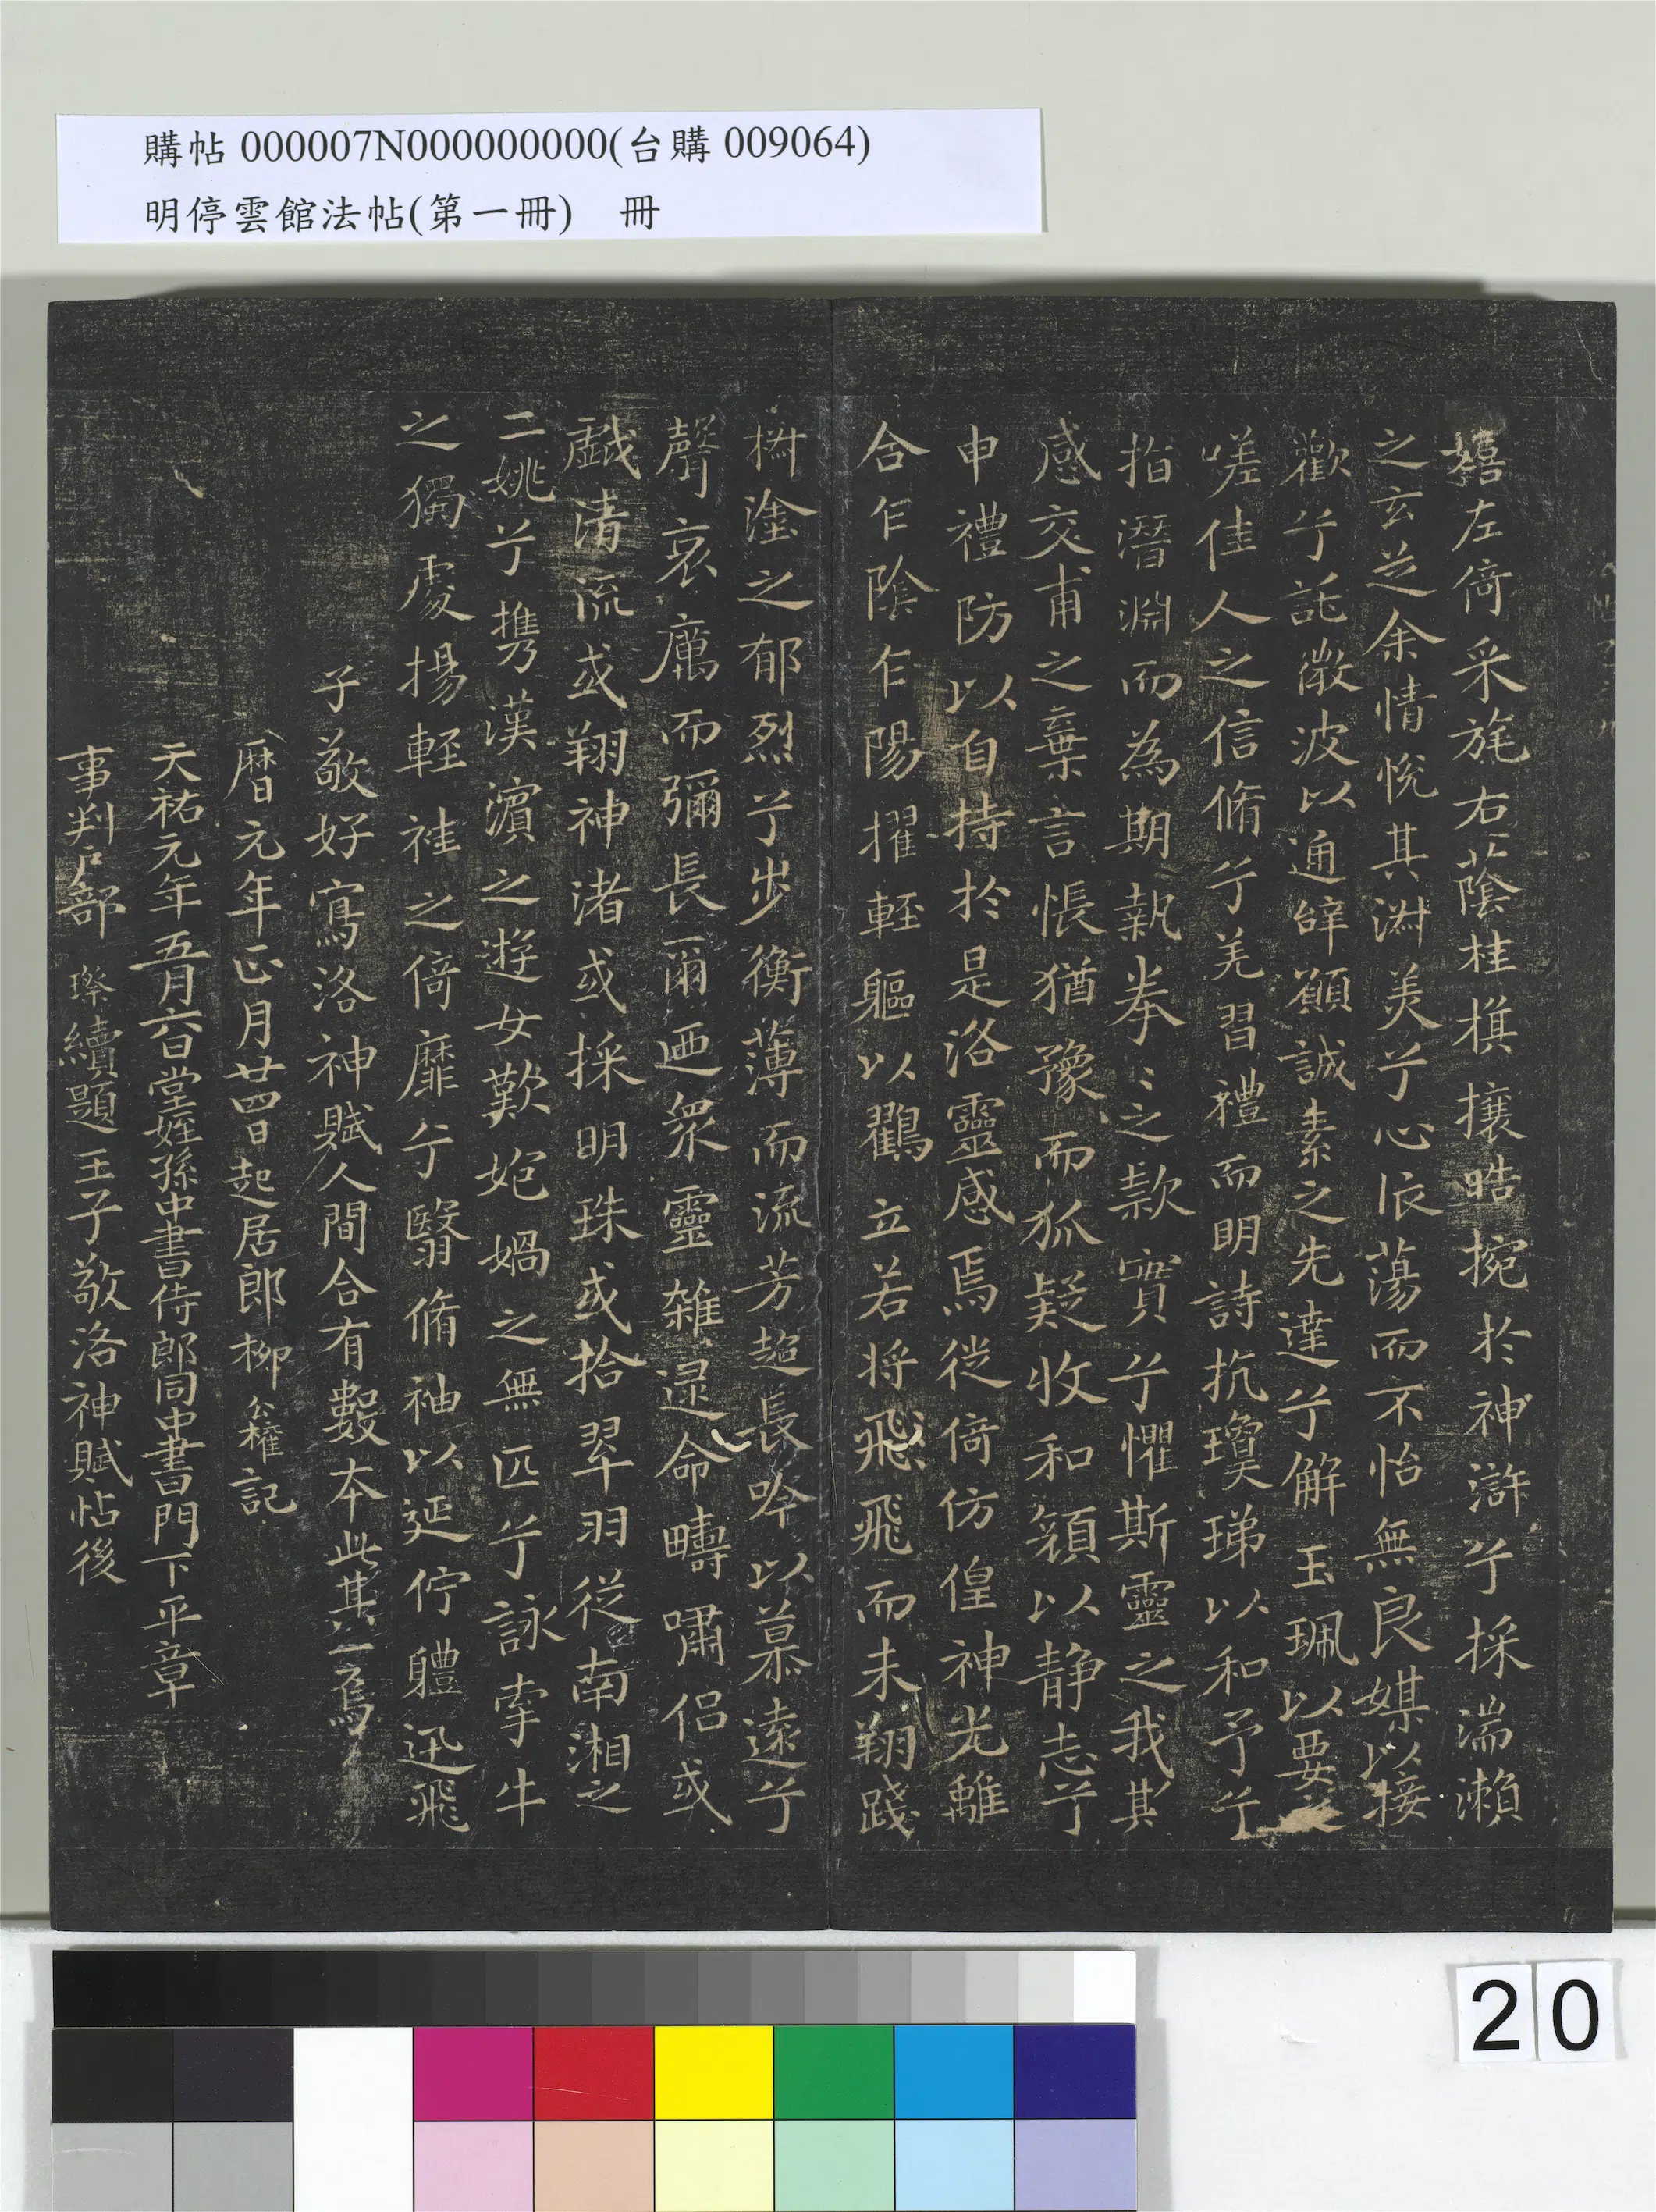 購帖 000007N000000000(台購 009064)
明停雲館法帖(第一冊) 冊
嬉左倚采旄右蔭桂旗攘晧捥於神滸兮採湍瀨
之玄芝余情悅其淑美兮心依蕩而不怡無良媒以接
歡兮託微波以通辞願誠素之先達兮解玉珮以要之
嗟佳人之信脩兮羌習禮而明詩抗瓊珶以和予兮
指潛淵而為期執拳〻之款實兮懼斯靈之我其
感交甫之棄言悵猶豫而狐疑收和顏以静志兮
申禮防以自持於是洛靈感焉徙倚仿偟神光離
合乍陰乍陽擢輕軀以鸛立若将飛飛而未翔踐
椒塗之郁烈兮步蘅薄而流芳超長吟以慕遠兮
聲哀厲而彌長爾迺衆靈雜遝命疇嘯侶或
戲清流或翔神渚或採明珠或拾翠羽從南湘之
二姚兮攜漢濱之遊女歎㚿媧之無匹兮詠牽牛
之獨處揚輕袿之倚靡兮翳脩袖以延佇軆迅飛
子敬好寫洛神賦人間合有數本此其一焉
曆元年正月廿四日起居郎柳公權記
天祐元年五月六日堂姪孫中書侍郎同中書門下平章
事判戶部 璨續題王子敬洛神賦帖後
20